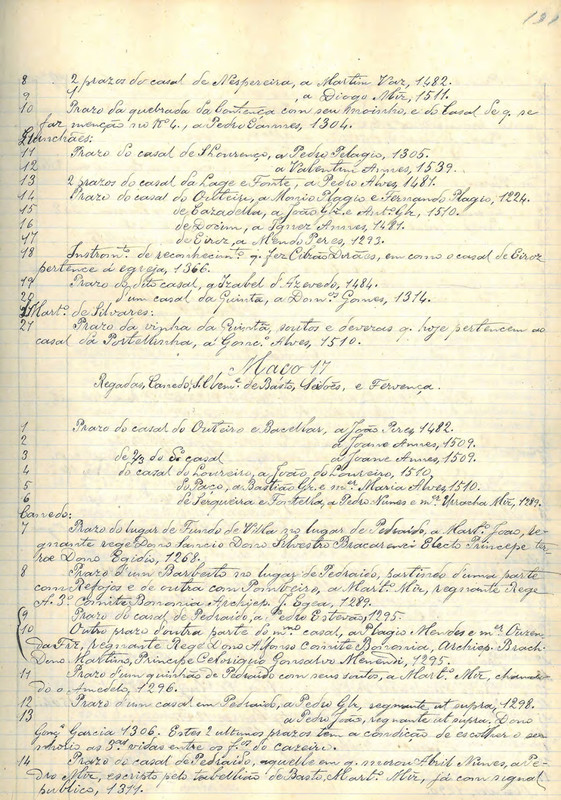 121
8 2 prazos do casal de Nespereira, a Martim Vaz, 1482.
9 " , a Diogo Miz, 1511.
10 Prazo da quebrada da Contença com seu moinho, e do Casal de q. se
faz menção no Nº 4., a Pedro Eannes, 1304.
Guinchães:
11 Prazo do casal de S Lourenço, a Pedro Pelagio, 1305.
12 a Valentim Annes, 1539.
13 2 prazos do casal da Lage e Fonte, a Pedro Alves, 1481.
14 Prazo do casal do Outeiro, a Plagio e Fernando Plagio, 1224.
15 de Cazadella, a João Glz. e Antº Glz, 1510.
16 de Docim, a Ignez Annes, 1481.
17 de Eiroz, a Mendo Peres, 1293.
18 Instromtº de reconhecimtº q. fez em como o casal de Eiroz
pertence á egreja, 1366.
19 Prazo do dito casal, a Izabel d'Azevedo, 1484.
20 d'um casal da Quinta, a Domºs Gomes, 1314.
S. Martº de Silvares:
21 Prazo da vinha da Quinta, soutos e deveras q. hoje pertencem ao
casal da Portellinha, a Gonçº Alves, 1510.
Maço 17
Regadas, Canedo, S. Clemtº de Basto, Gadoes, e Fervença.
1 Prazo do casal do Outeiro e Bacelhar, a João Pires, 1482.
2 a Joanne Annes, 1509.
3 de 2/3 do dº casal a Joanne Annes, 1509.
4 do casal do Loureiro, a João do Loureiro, 1510.
5 do Paço, a Bastião Gz. e mer Maria Alves, 1510.
6 de Serqueira e Fontella, a Pedro Nunes e mer Miz, 1289.
Canedo:
7 Prazo do lugar de Fundo de Villa no lugar de Pedraido, a Martº João, re-
gnante rege Dono Sancio Dono Silvestro Bracarenci Electo Principe ter-
rae Dono Egidio, 1268.
8 Prazo d'um no lugar de Pedraido, partindo d'uma parte
com Refojos e de outra com Pombeiro, a Martº Miz, regnante Rege
A. 3º comite Bononia Archiep. f. Egea, 1289.
9 Prazo do casal de Pedraido, a Pedro Estevão, 1295.
10 Outro prazo d'outra parte do mº casal, a Plagio Mendes e mer Ouren-
da Frz, regnante Rege Dono Afonso comite Bononia, Archiep. Brach.
Dono Martino, Principe Celorigus Gonsalvo Menendi, 1295.
11 Prazo d'um quinhão de Pedraido com seus soutos, a Martº Miz, chama-
do o Amedelo, 1296.
12 Prazo d'um casal em Pedraido, a Pedro Glz, regnante ut supra, 1298.
13 a Pedro João, regnante ut supra, Dono
Gonçº Garcia 1306. Estes 2 ultimos prazos tem a condição de escolher o sen-
horio as 3as vidas entre os fºs do cazeiro.
14 Prazo do casal de Pedraido, aquelle em q. morou Abril Nunes, a Pe-
dro Miz, escripto pelo tabellião de Basto, Martº Miz, já com signal
publico, 1311.